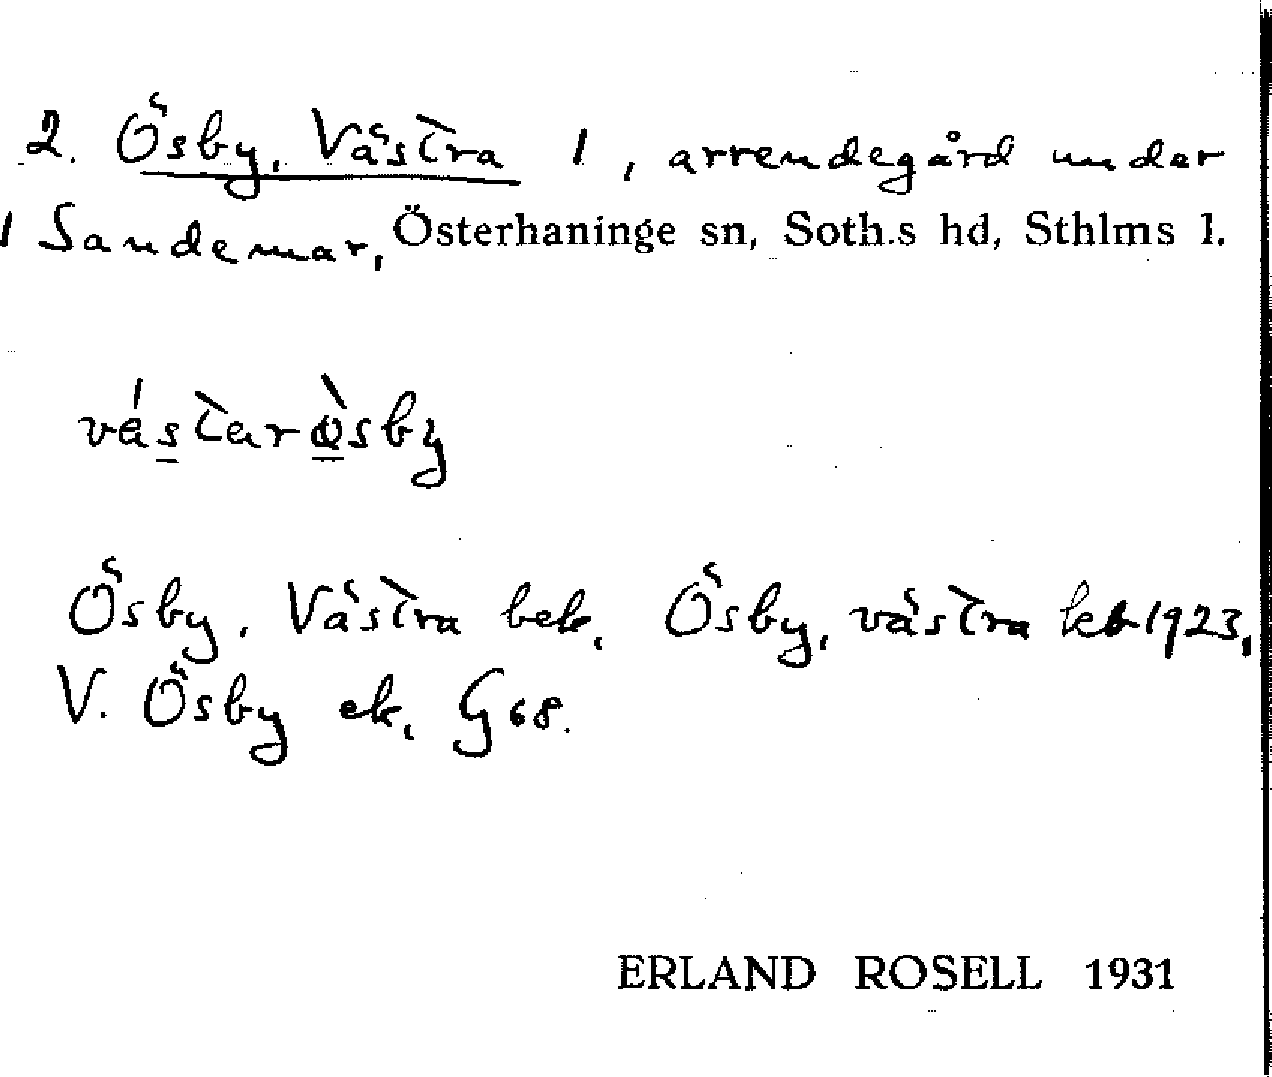 2. Ösby, Västra 1, arrendegård under
1 Sandemar, Österhaninge sn, Soth.s hd, Sthlms l.
västerösby
Ösby, Västra bek. Ösby, västra kb 1923,
V. Ösby ek. G 68.
ERLAND ROSELL 1931